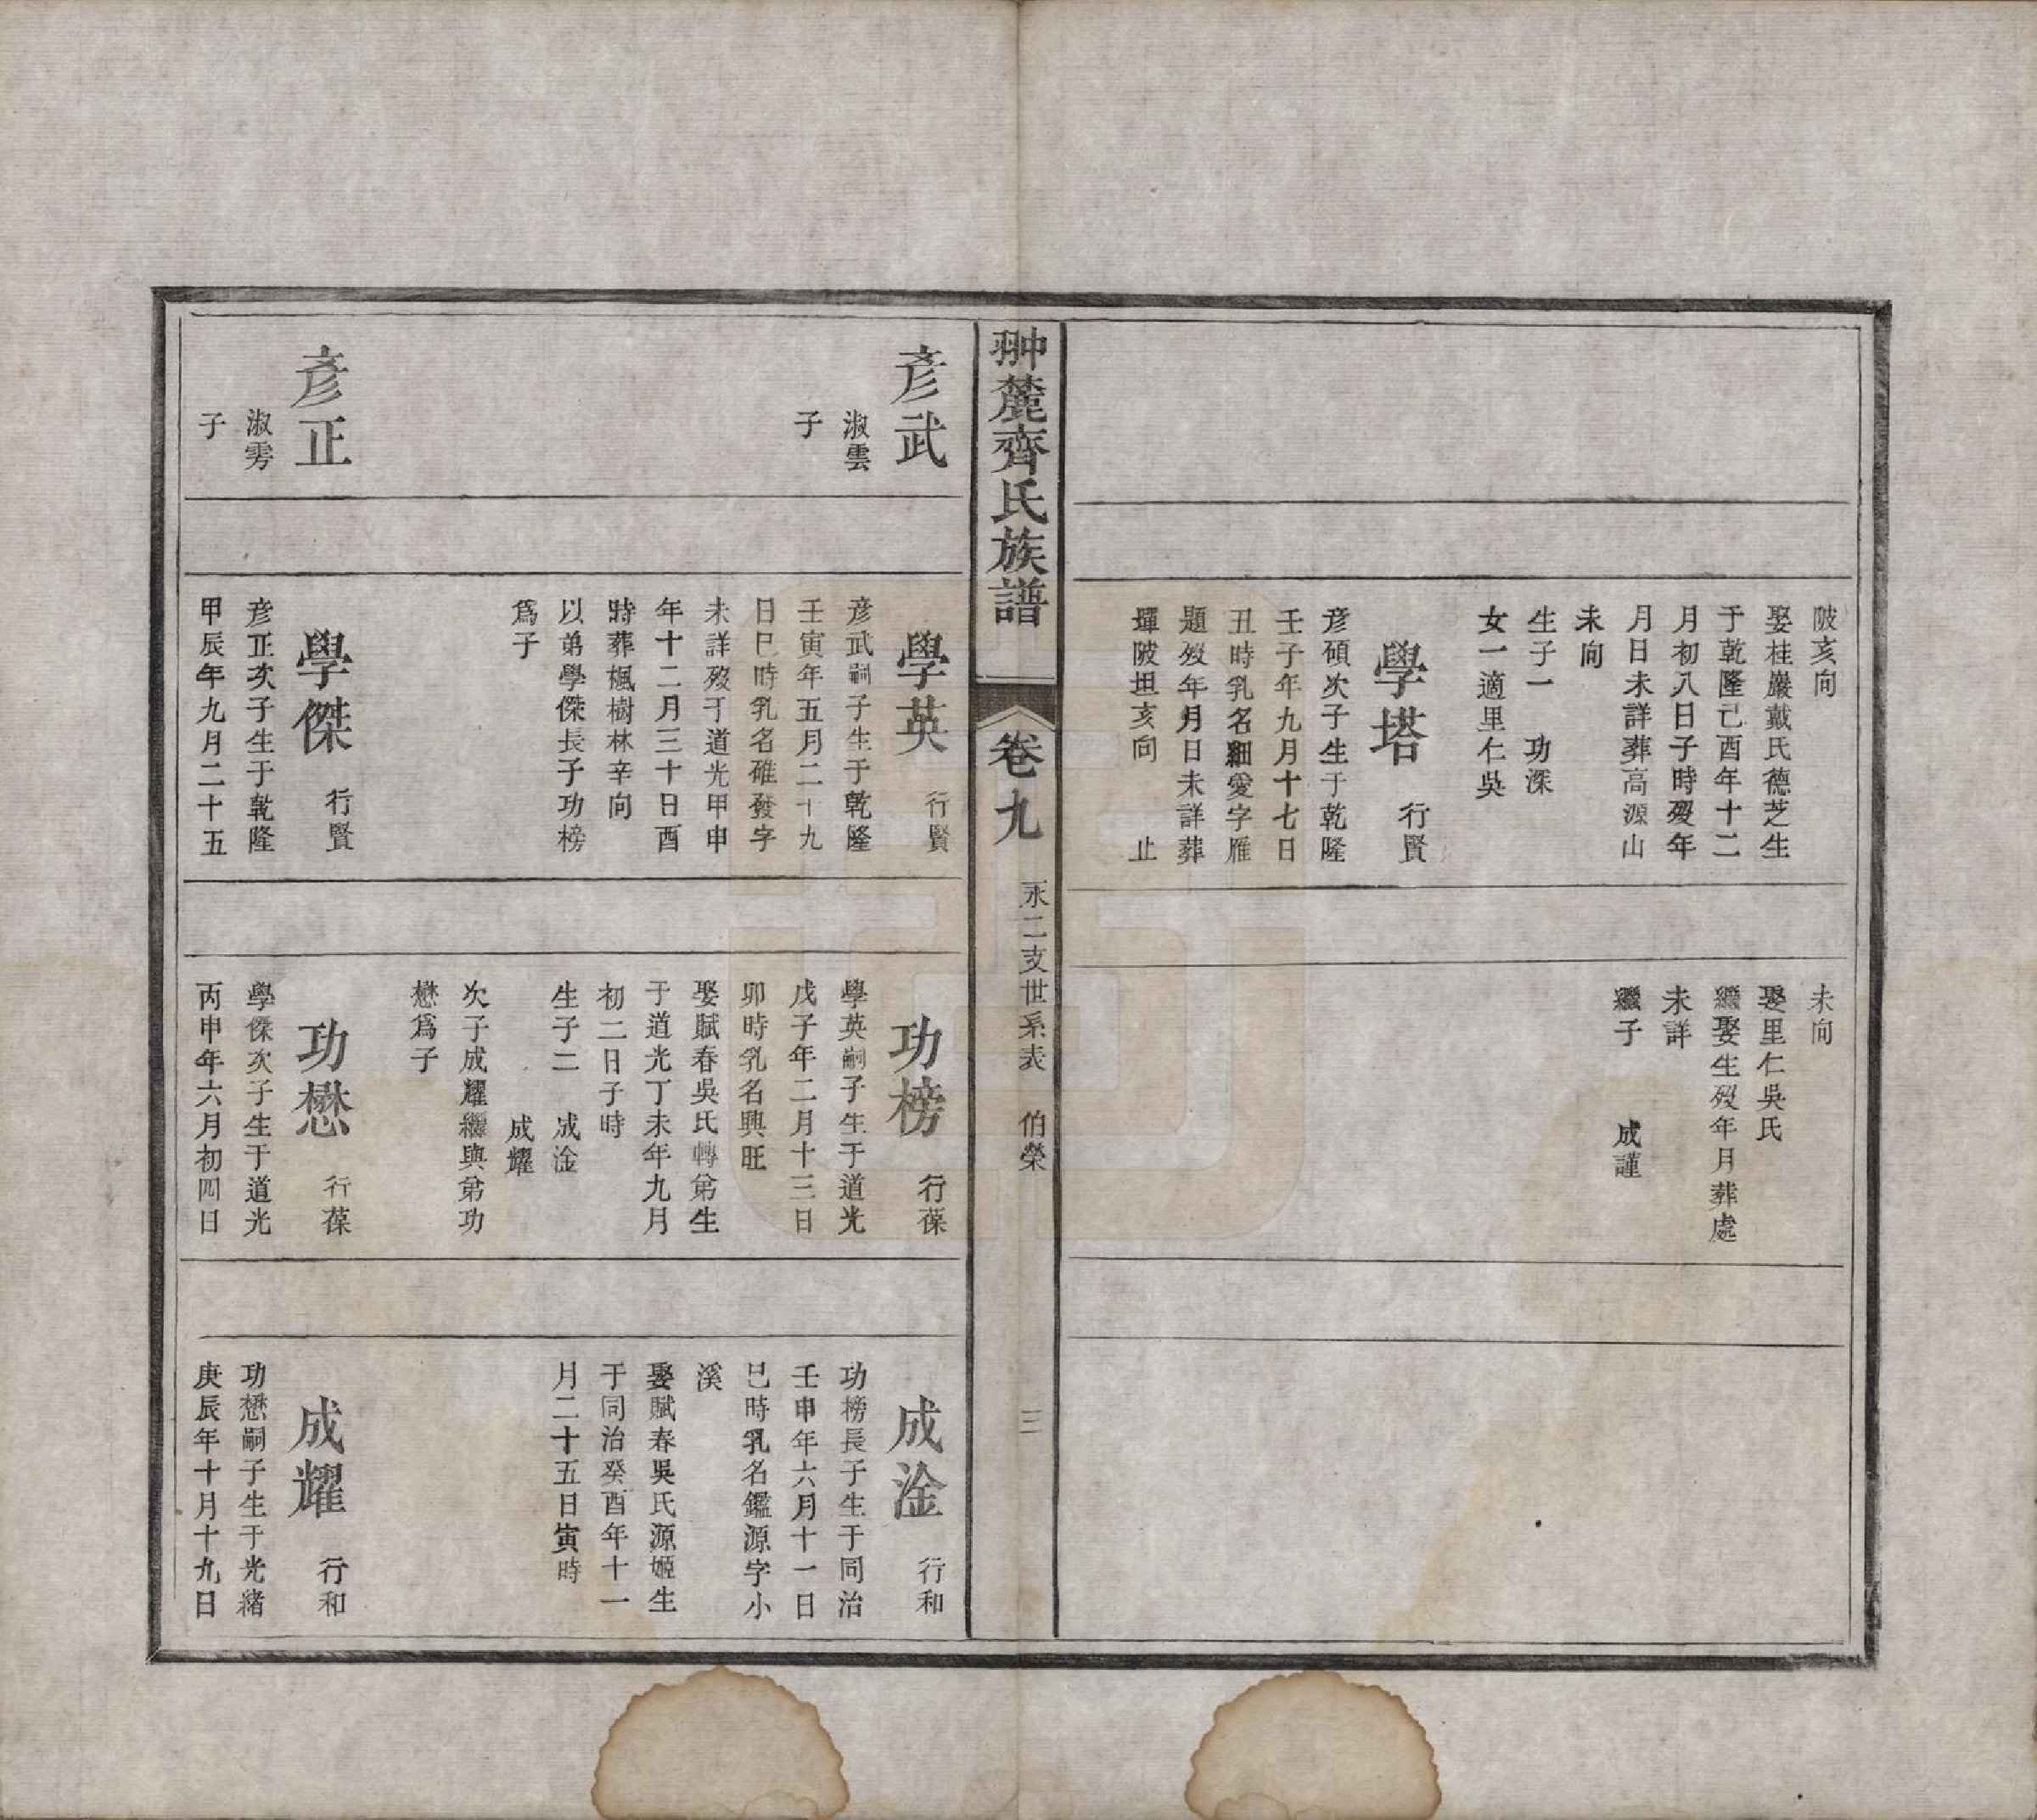 陂亥向
娶桂巖戴氏德芝生
于乾隆己酉年十二
月初八日子時歿年
月日未詳葬高源山
未向
生子一　功深
女一適里仁吳
學塔　行賢
彦碩次子生于乾隆
壬子年九月十七日
丑時乳名細愛字雁
題歿年月日未詳葬
墿陂坦亥向　止
未向
娶里仁吳氏
繼娶生歿年月葬處
未詳
繼子　成謹
翀麓齊氏族譜
卷九
永二支世系表　伯榮
三
彦武
淑雲
子
彦正
淑雱
子
學英　行賢
彦武嗣子生于乾隆
壬寅年五月二十九
日巳時乳名碓發字
未詳歿于道光甲申
年十二月三十日酉
時葬楓樹林辛向
以弟學傑長子功榜
爲子
學傑　行賢
彦正次子生于乾隆
甲辰年九月二十五
功榜　行葆
學英嗣子生于道光
戊子年二月十三日
卯時乳名興旺
娶賦春吳氏轉弟生
于道光丁未年九月
初二日子時
生子二　成淦
成耀
次子成耀繼與弟功
懋爲子
功懋　行葆
學傑次子生于道光
丙申年六月初四日
成淦　行和
功榜長子生于同治
壬申年六月十一日
巳時乳名鑑源字小
溪
娶賦春吳氏源姬生
于同治癸酉年十一
月二十五日寅時
成耀　行和
功懋嗣子生于光緒
庚辰年十月十九日